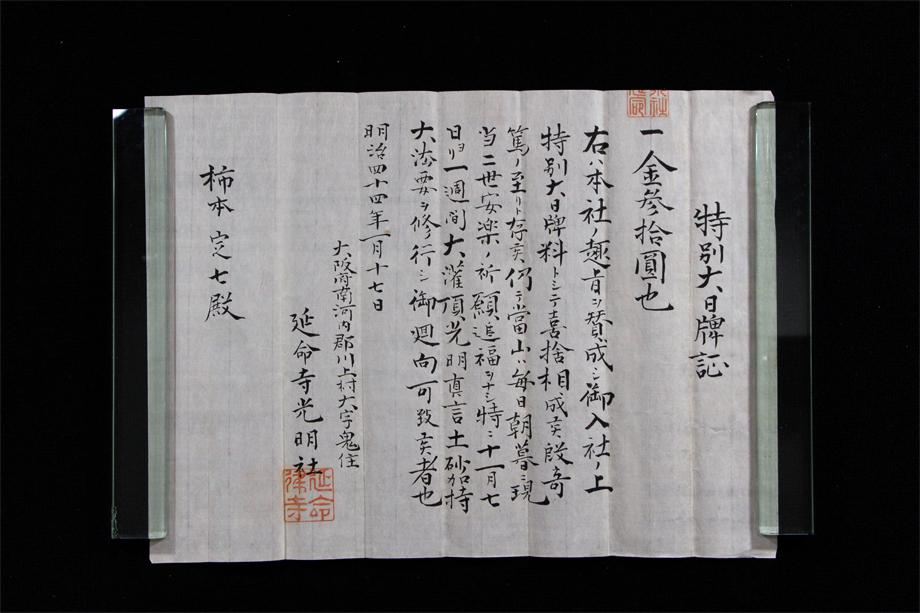 特別大日牌証
一金参拾圓也
右ハ本社ノ趣旨ヲ賛成シ御入社ノ上
特別大日牌料トシテ喜捨相成候段奇
篤ノ至リト存候仍テ當山ハ毎日朝暮ニ現
当二世安楽ノ祈願追福ヲナシ特ニ十一月七
日ヨリ一週間大灌頂光明真言土砂加持
大法要ヲ修行シ御廻向可致候者也
明治四十四年一月十七日
大阪府南河内郡川上村大字鬼住
延命寺光明社
延命律寺
柿本定七殿